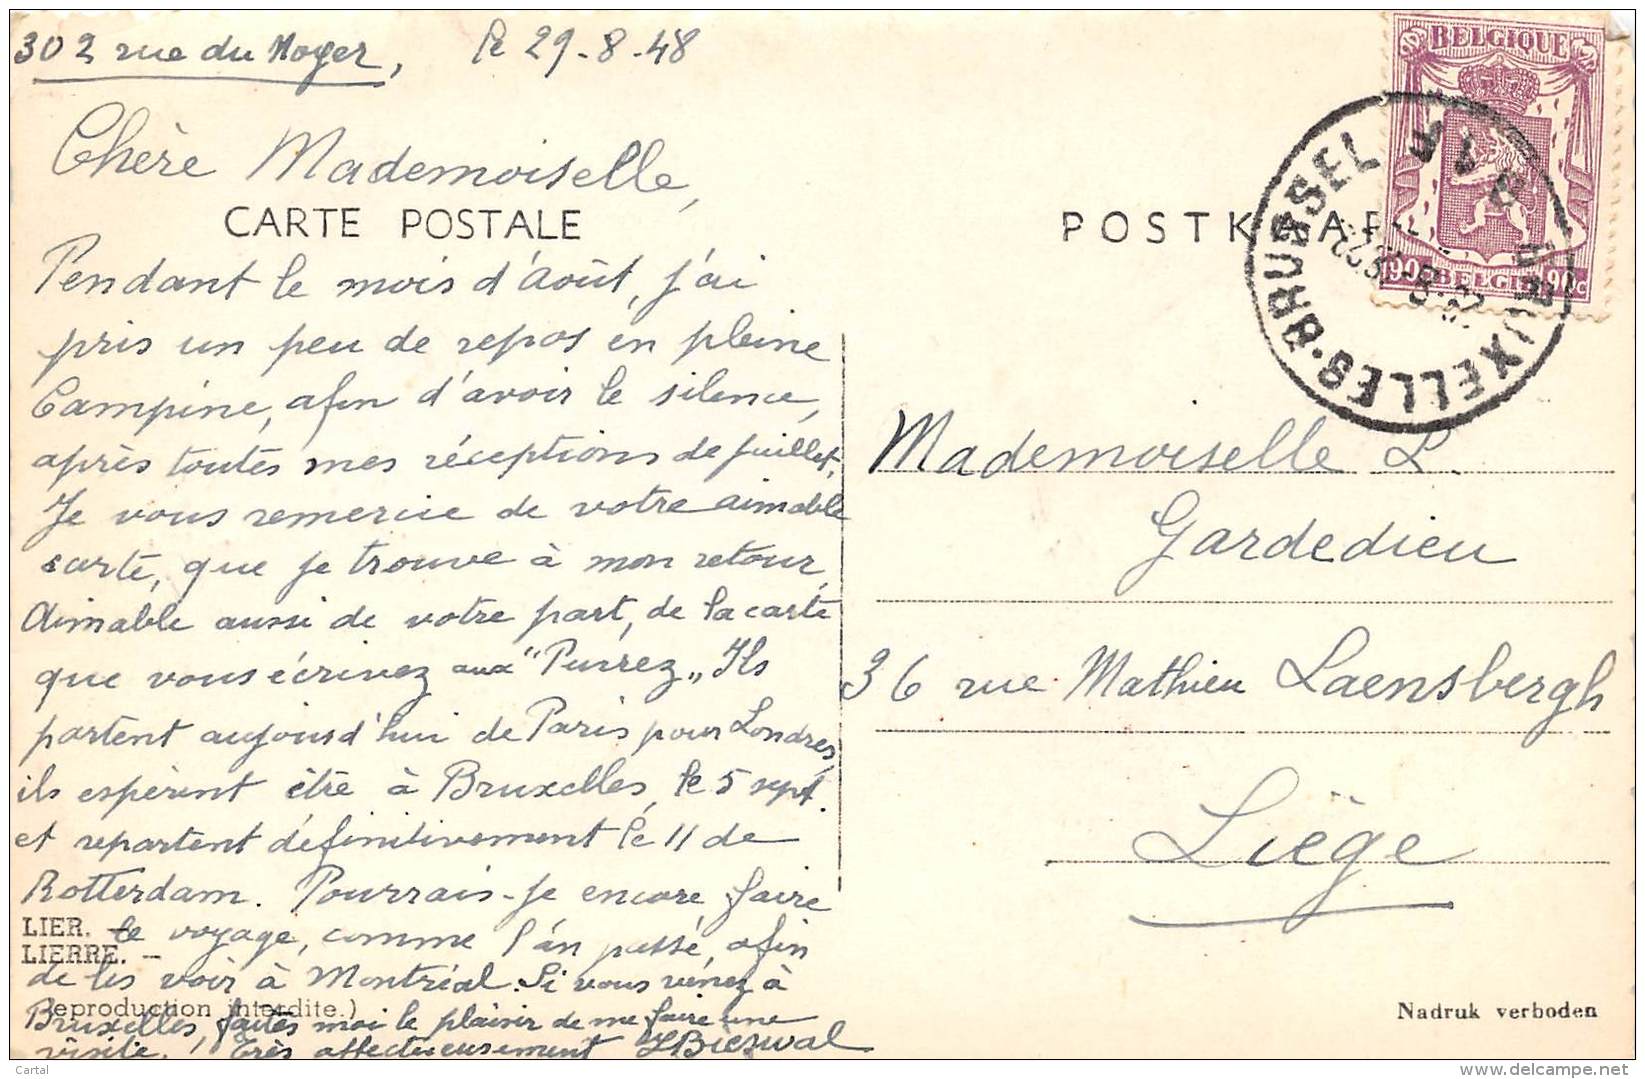 302 rue du Noyer, le 29-8-48
Chère Mademoiselle,
CARTE POSTALE
Pendant le mois d'Août, j'ai
pris un peu de repos en pleine
Campine, afin d'avoir le silence,
après toutes mes réceptions de juillet.
Je vous remercie de votre aimable
carte, que je trouve à mon retour,
Aimable aussi de votre part, de la carte
que vous écrivez aux "Purrez„ Ils
partent aujourd'hui de Paris pour Londres,
ils espèrent être à Bruxelles, le 5 sept.
et repartent définitivement le 11 de
Rotterdam. Pourrais-je encore faire
LIER. –
le voyage, comme l'an passé, afin
LIERRE. –
de les voir à Montréal. Si vous venez à
(Reproduction interdite.)
Bruxelles, faites moi le plaisir de me faire une
visite. Très affectueusement
POSTKAART
BELGIQUE
90c BELGIE 90c
BRUXELLES · BRUSSEL
Mademoiselle L.
Gardedieu
36 rue Mathieu Laensbergh
Liège
Nadruk verboden
Cartal
www.delcampe.net